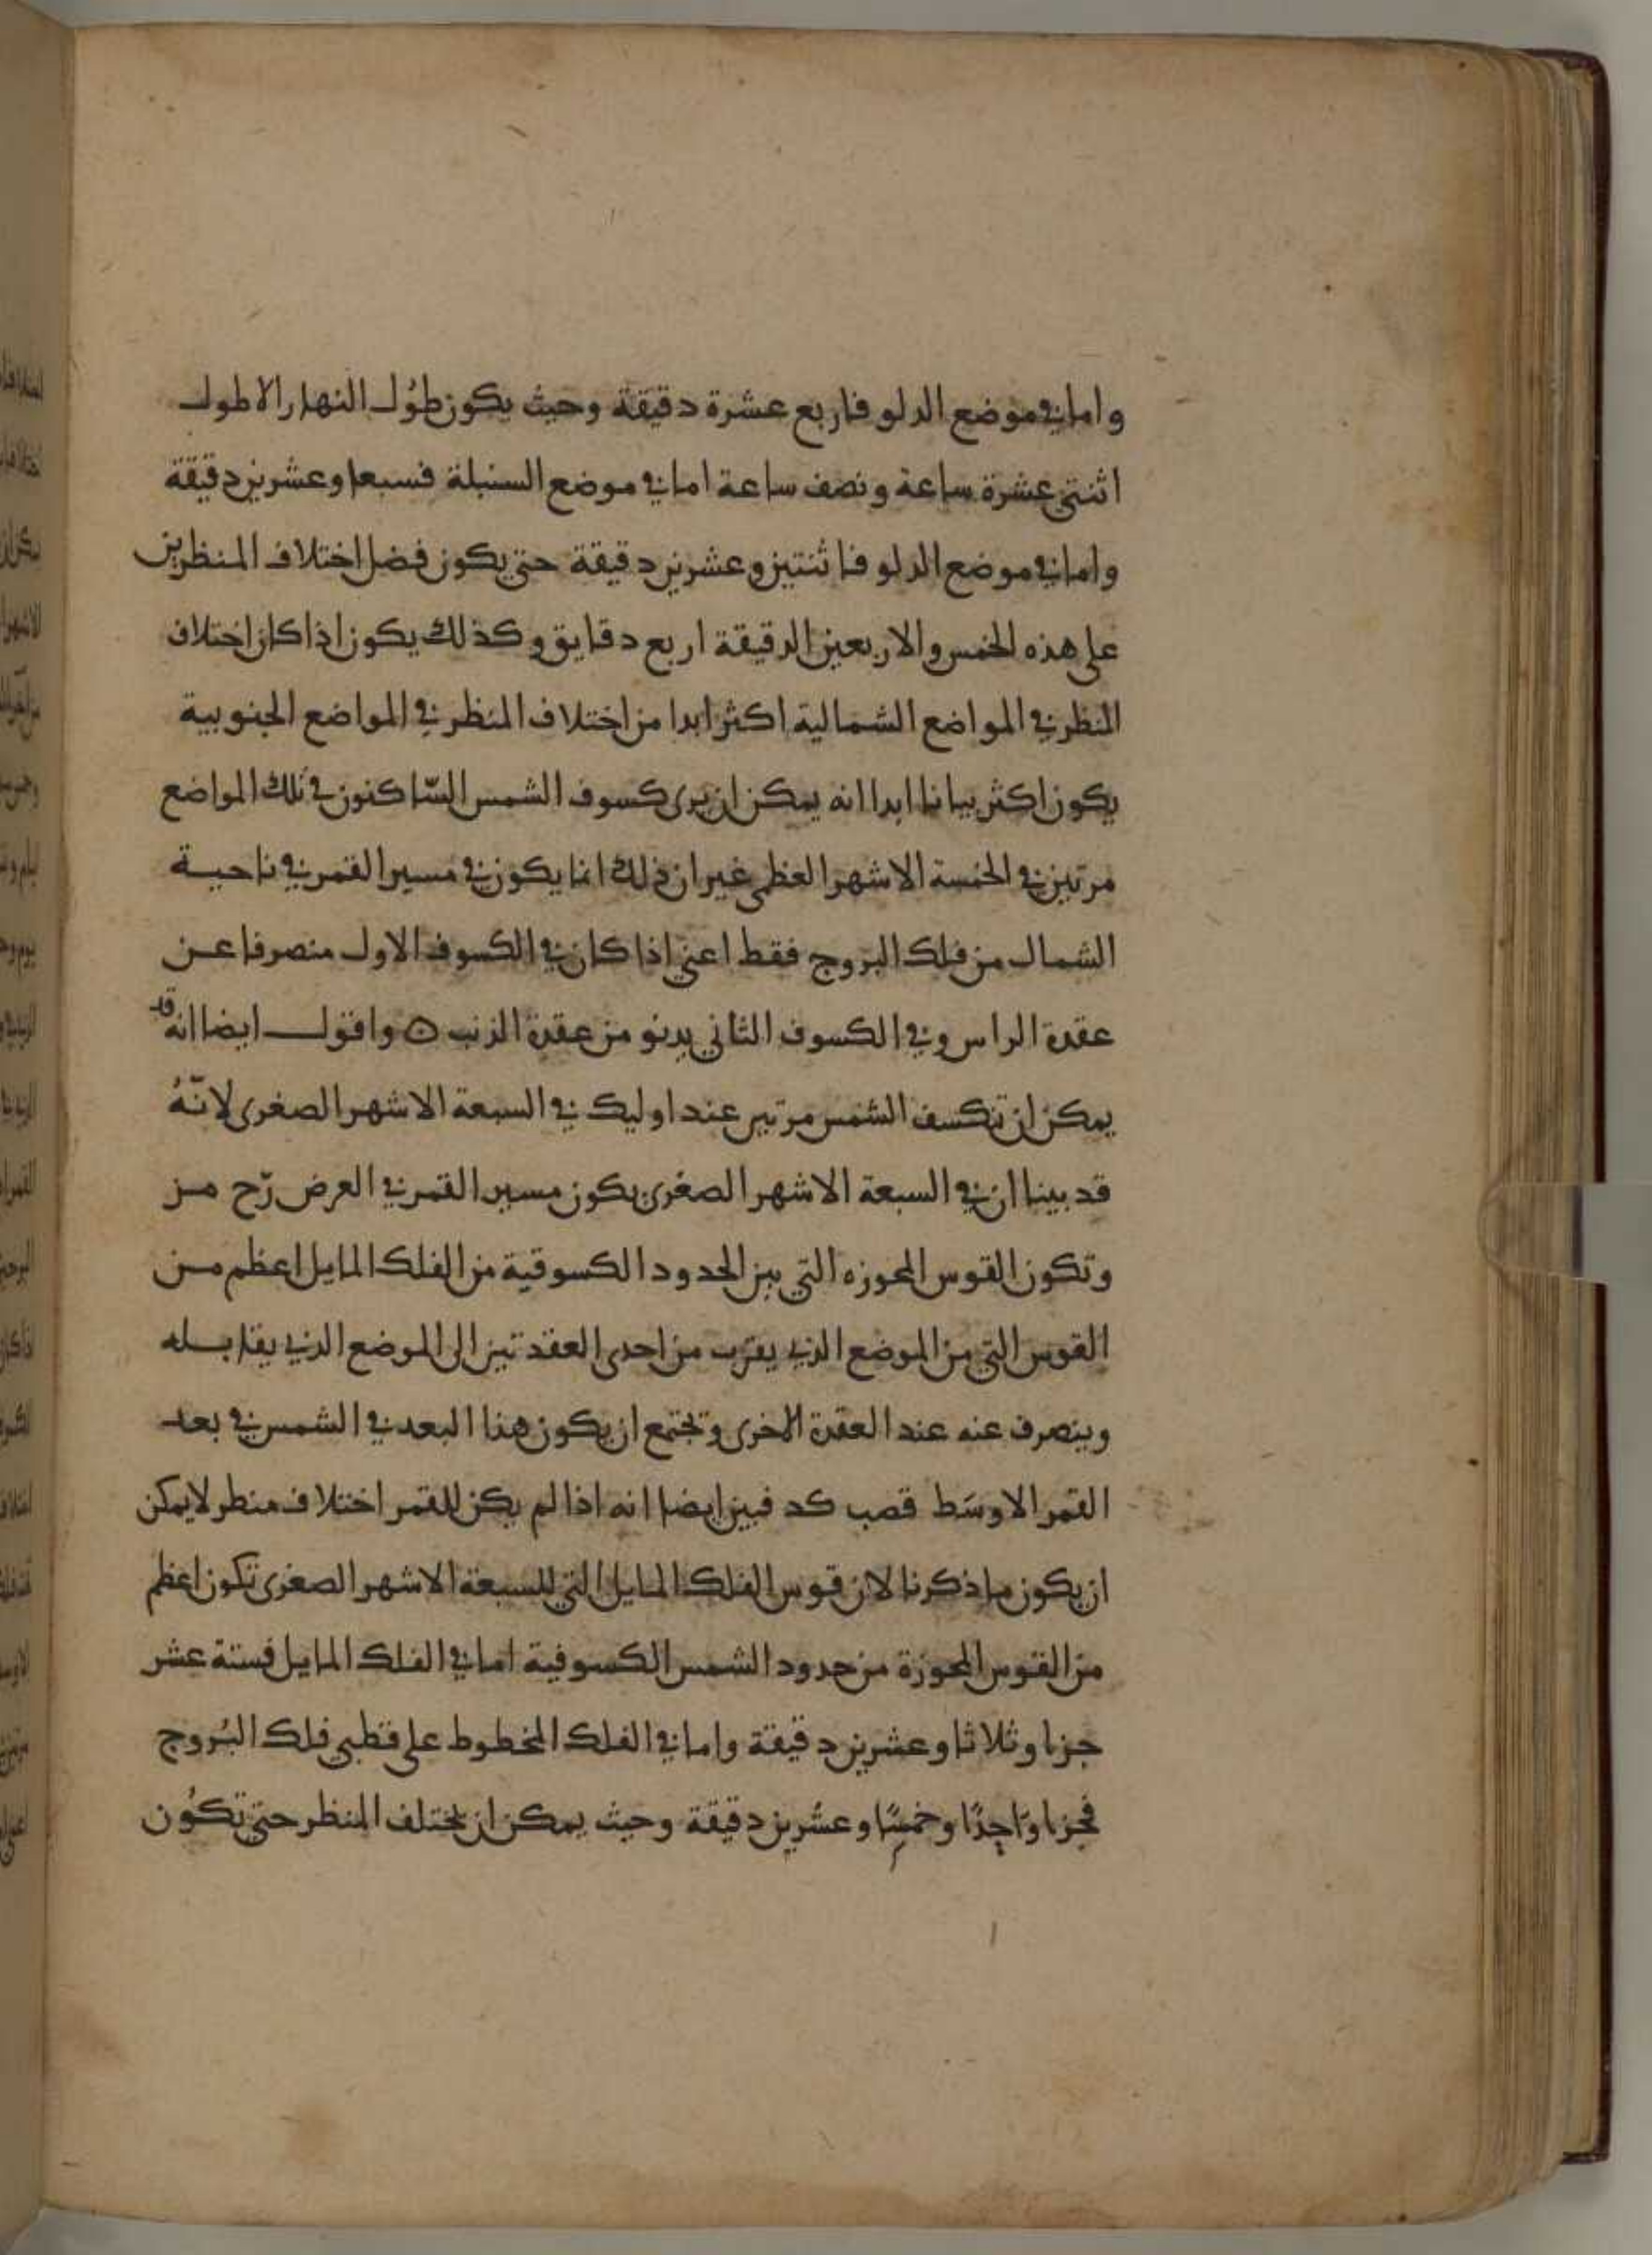 واما في موضع الدلو فاربع عشرة دقيقة وحيث يكون طول النهار الاطول
اثنتي عشرة ساعة ونصف ساعة اما في موضع السنبلة فسبعا وعشرين دقيقة
واما في موضع الدلو فاثنتين وعشرين دقيقة حتى يكون فضل اختلاف المنظرين
على هذه الخمس والاربعين الدقيقة اربع دقايق وكذلك يكون اذا كان اختلاف
المنظر في المواضع الشمالية اكثر ابدا من اختلاف المنظر في المواضع الجنوبية
يكون اكثر بيانا ابدا انه يمكن ان يرى كسوف الشمس السّاكنون في تلك المواضع
مرتين في الخمسة الاشهر العظمى غير ان ذلك انما يكون في مسير القمر في ناحية
الشمال من فلك البروج فقط اعني اذا كان في الكسوف الاول منصرفا عن
عقدة الراس وفي الكسوف الثاني يدنو من عقدة الذنب ں واقول ايضا انه قد
يمكن ان تنكسف الشمس مرتين عند اوليك في السبعة الاشهر الصغرى لانّهُ
قد بينا ان في السبعة الاشهر الصغرى يكون مسير القمر في العرض رّح من
وتكون القوس المحوزه التي بين الحدود الكسوفية من الفلك المايل اعظم من
القوس التي من الموضع الذي يقرب من احدى العقدتين الى الموضع الذي يقابله
وينصرف عنه عند العقدة الاخرى وتجتمع ان يكون هذا البعد في الشمس في بعد
القمر الاوسَط قصب كد فبين ايضا انه اذا لم يكن للقمر اختلاف منظر لا يمكن
ان يكون ما ذكرنا لان قوس الفلك المايل التي للسبعة الاشهر الصغرى تكون اعظم
من القوس المحوزة من حدود الشمس الكسوفية اما في الفلك المايل فستة عشر
جزءا وثلاثا وعشرين دقيقة واما في الفلك المخطوط على قطبي فلك البُروج
فجزءا وَاحِدًا وخمسًا وعشرين دقيقة وحيث يمكن ان يختلف المنظر حتى تكُون